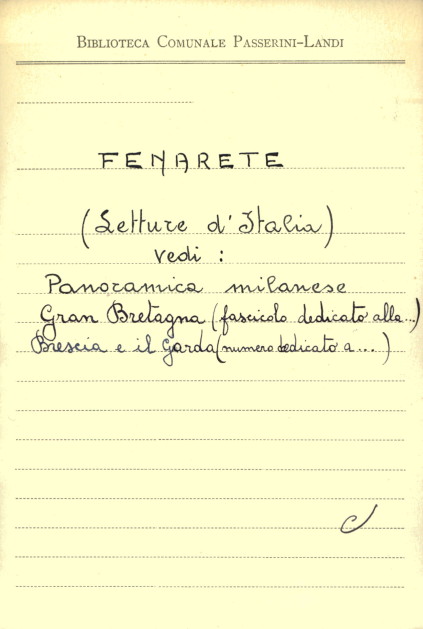 BIBLIOTECA COMUNALE PASSERINI-LANDI
FENARETE
(Letture d'Italia)
vedi :
Panoramica milanese
Gran Bretagna (fascicolo dedicato alla...)
Brescia e il Garda (numero dedicato a...)